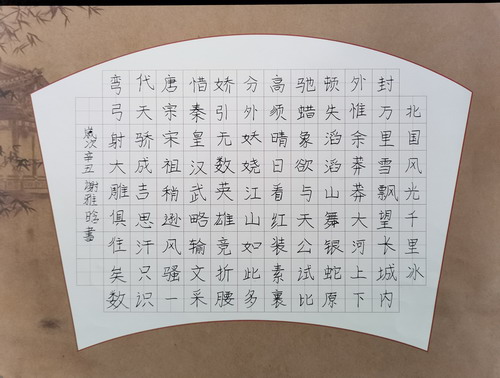 北国风光千里冰
封万里雪飘望长城内
外惟余莽莽大河上下
顿失滔滔山舞银蛇原
驰蜡象欲与天公试比
高须晴日看红装素裹
分外妖娆江山如此多
娇引无数英雄竞折腰
惜秦皇汉武略输文采
唐宗宋祖稍逊风骚一
代天骄成吉思汗只识
弯弓射大雕俱往矣数
岁次辛丑 谢雅晗 书